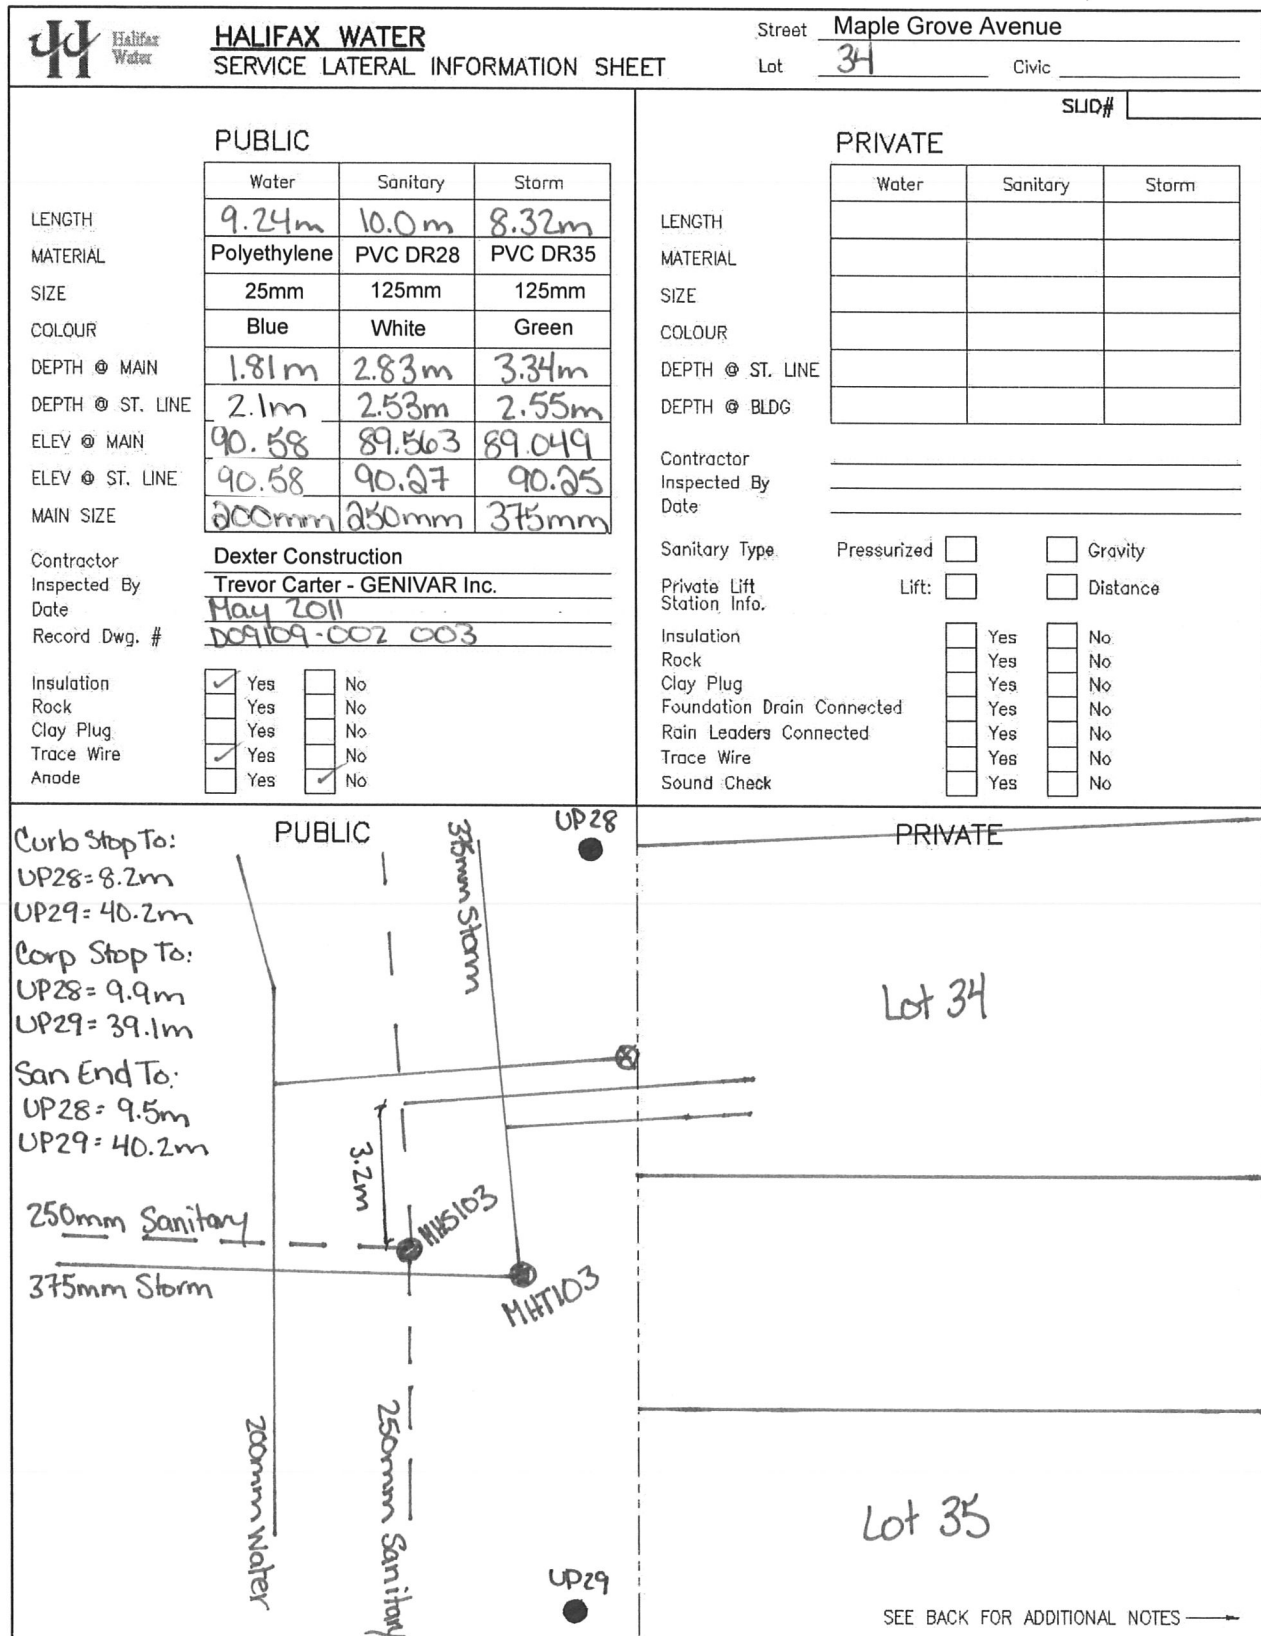 Halifax Water
HALIFAX WATER
SERVICE LATERAL INFORMATION SHEET
Street Maple Grove Avenue
Lot 34 Civic
SLID#
PUBLIC
Water Sanitary Storm
LENGTH 9.24m 10.0m 8.32m
MATERIAL Polyethylene PVC DR28 PVC DR35
SIZE 25mm 125mm 125mm
COLOUR Blue White Green
DEPTH @ MAIN 1.81m 2.83m 3.34m
DEPTH @ ST. LINE 2.1m 2.53m 2.55m
ELEV @ MAIN 90.58 89.563 89.049
ELEV @ ST. LINE 90.58 90.27 90.25
MAIN SIZE 200mm 250mm 375mm
Contractor Dexter Construction
Inspected By Trevor Carter - GENIVAR Inc.
Date May 2011
Record Dwg. # D09109-002 003
Insulation ✓ Yes No
Rock Yes No
Clay Plug Yes No
Trace Wire ✓ Yes No
Anode Yes ✓ No
PRIVATE
Water Sanitary Storm
LENGTH
MATERIAL
SIZE
COLOUR
DEPTH @ ST. LINE
DEPTH @ BLDG
Contractor
Inspected By
Date
Sanitary Type Pressurized Gravity
Private Lift Station Info. Lift: Distance
Insulation Yes No
Rock Yes No
Clay Plug Yes No
Foundation Drain Connected Yes No
Rain Leaders Connected Yes No
Trace Wire Yes No
Sound Check Yes No
PUBLIC
Curb Stop To:
UP28=8.2m
UP29=40.2m
Corp Stop To:
UP28=9.9m
UP29=39.1m
San End To:
UP28=9.5m
UP29=40.2m
375mm Storm
UP28
3.2m
250mm Sanitary
MHS103
375mm Storm
MHT103
200mm Water
250mm Sanitary
UP29
PRIVATE
Lot 34
Lot 35
SEE BACK FOR ADDITIONAL NOTES